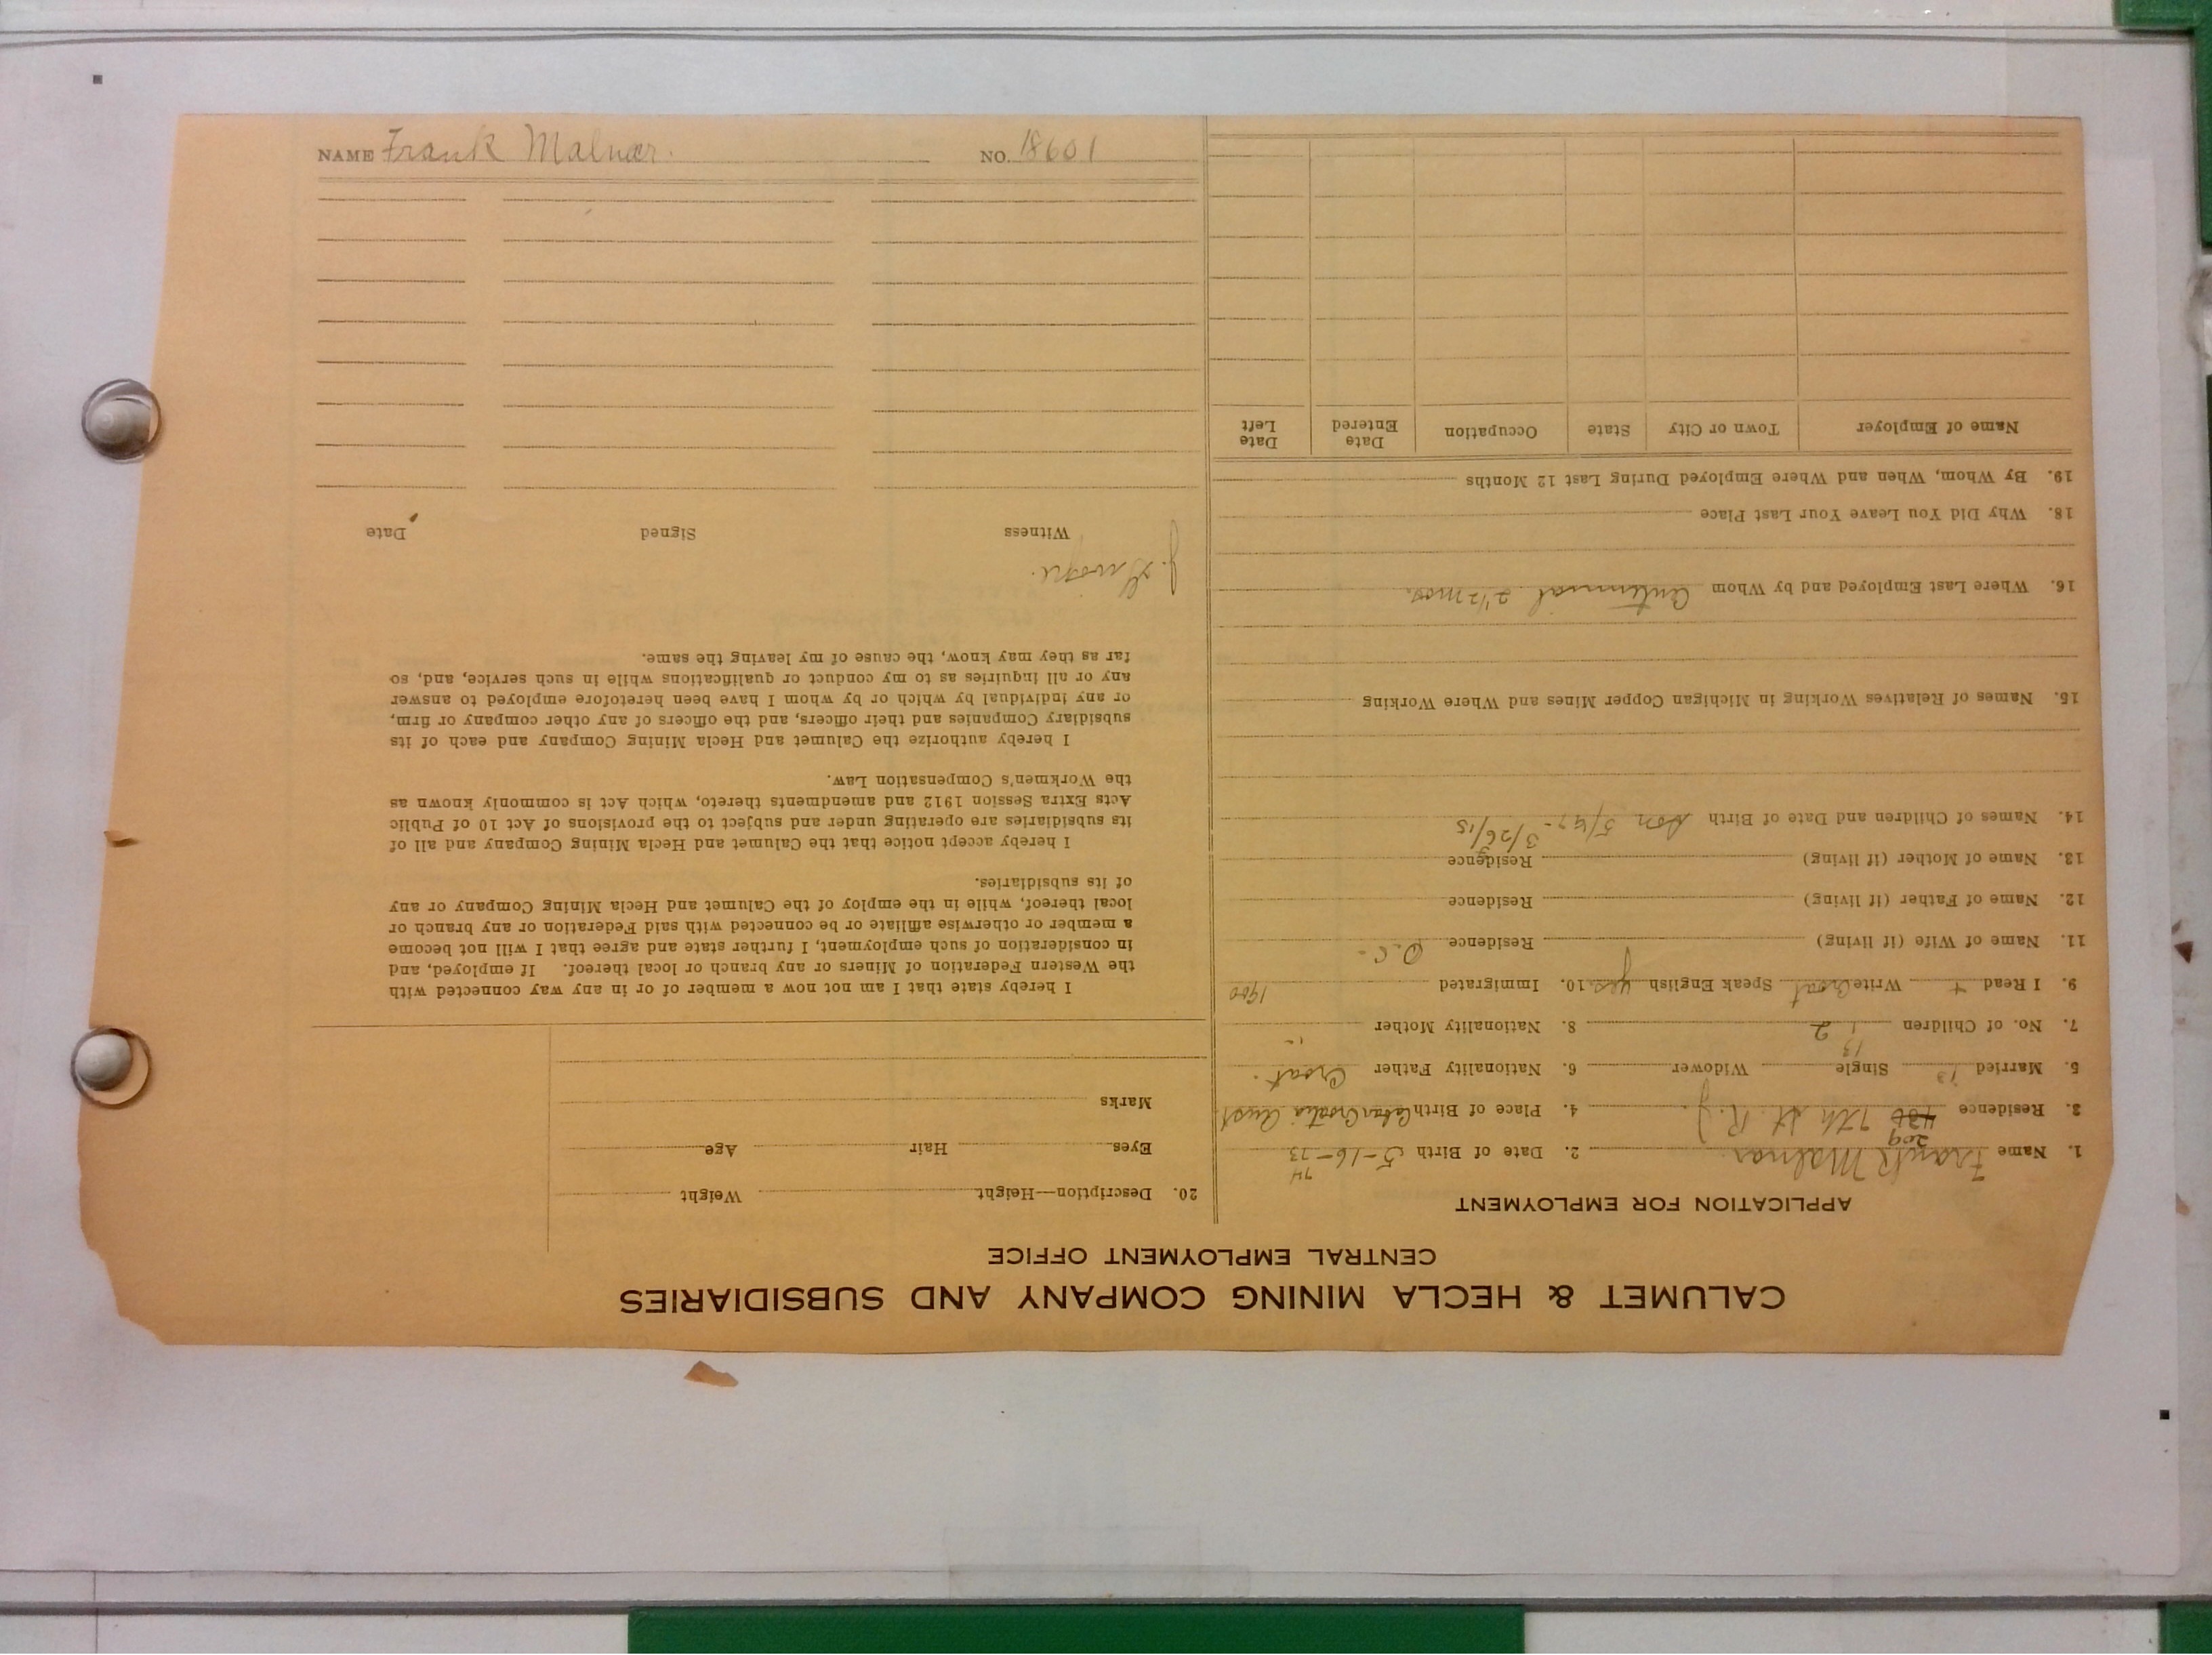 NAME Frank Malnar. NO. 18601
CALUMET & HECLA MINING COMPANY AND SUBSIDIARIES
CENTRAL EMPLOYMENT OFFICE
APPLICATION FOR EMPLOYMENT
1. Name Frank Malnar 2. Date of Birth 5-16-73 74
209
3. Residence 7th St. R.J. 4. Place of Birth Croatia Aust
5. Married 13 Single Widower 6. Nationality Father Croat.
13
7. No. of Children 1 2 8. Nationality Mother "
9. I Read + Write Croat Speak English yes 10. Immigrated 1900
11. Name of Wife (if living) Residence O.C.
12. Name of Father (if living) Residence
13. Name of Mother (if living) Residence
14. Names of Children and Date of Birth Son
3/26/15
15. Names of Relatives Working in Michigan Copper Mines and Where Working
16. Where Last Employed and by Whom Centennial 2 1/2 mos.
18. Why Did You Leave Your Last Place
19. By Whom, When and Where Employed During Last 12 Months
Name of Employer Town or City State Occupation Date Entered Date Left
20. Description—Height Weight
Eyes Hair Age
Marks
I hereby state that I am not now a member of or in any way connected with
the Western Federation of Miners or any branch or local thereof. If employed, and
in consideration of such employment, I further state and agree that I will not become
a member or otherwise affiliate or be connected with said Federation or any branch or
local thereof, while in the employ of the Calumet and Hecla Mining Company or any
of its subsidiaries.
I hereby accept notice that the Calumet and Hecla Mining Company and all of
its subsidiaries are operating under and subject to the provisions of Act 10 of Public
Acts Extra Session 1912 and amendments thereto, which Act is commonly known as
the Workmen's Compensation Law.
I hereby authorize the Calumet and Hecla Mining Company and each of its
subsidiary Companies and their officers, and the officers of any other company or firm,
or any individual by which or by whom I have been heretofore employed to answer
any or all inquiries as to my conduct or qualifications while in such service, and, so
far as they may know, the cause of my leaving the same.
J.
Witness Signed Date